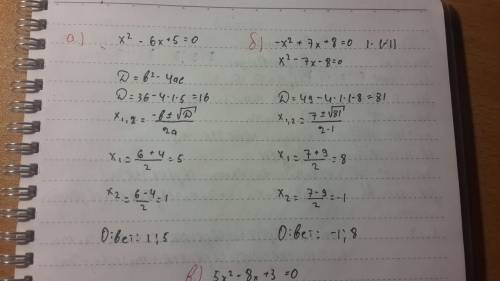 а) x² - 6x + 5 = 0
D = b² - 4ac
D = 36 - 4·1·5 = 16
x₁,₂ = (-b ± √D)/2a
x₁ = (6 + 4)/2 = 5
x₂ = (6 - 4)/2 = 1
Ответ: 1; 5
б) -x² + 7x + 8 = 0 |·(-1)
x² - 7x - 8 = 0
D = 49 - 4·1·(-8 = 81
x₁,₂ = (7 ± √81)/2·1
x₁ = (7 + 9)/2 = 8
x₂ = (7 - 9)/2 = -1
Ответ: -1; 8
в) 5x² - 8x + 3 = 0